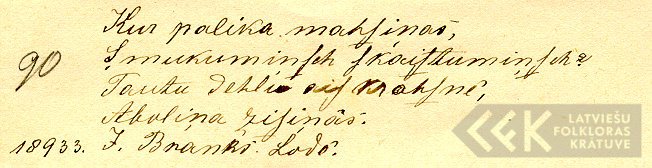 Kur palika mahsiņas,
90 Smukumiņsch skaistumiņsch?
Tautu dehli aif krahsnē,
Abolina ziziņās.
18933. J. Branks. Lodē.
LATVIEŠU
FOLKLORAS
KRATUVE